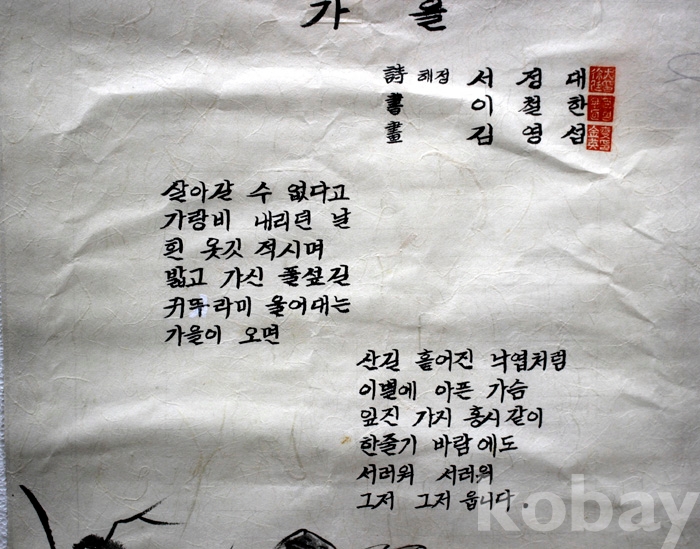 가 을
詩 혜정 서 정 대
書 이 철 한
畫 김 영 섭
살아갈 수 없다고
가랑비 내리던 날
흰 옷깃 적시며
밟고 가신 풀섶길
귀뚜라미 울어대는
가을이 오면
산길 흩어진 낙엽처럼
이별에 아픈 가슴
잎진 가지 홍시같이
한줄기 바람에도
서러워 서러워
그저 그저 웁니다.
kobay